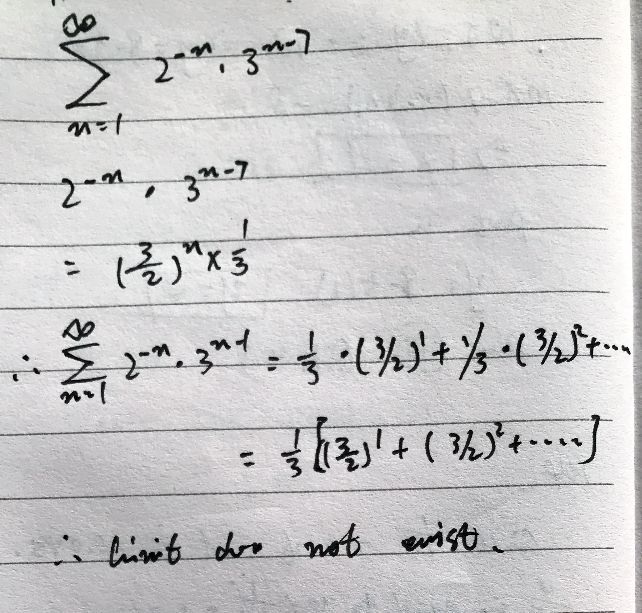 ∞
∑ 2^{-n} · 3^{n-7}
n=1
2^{-n} · 3^{n-7}
= (3/2)^n × 1/3
∴ ∞∑n=1 2^{-n} · 3^{n-1} = 1/3 · (3/2)^1 + 1/3 · (3/2)^2 + ....
= 1/3 [(3/2)^1 + (3/2)^2 + .....]
∴ limit does not exist.